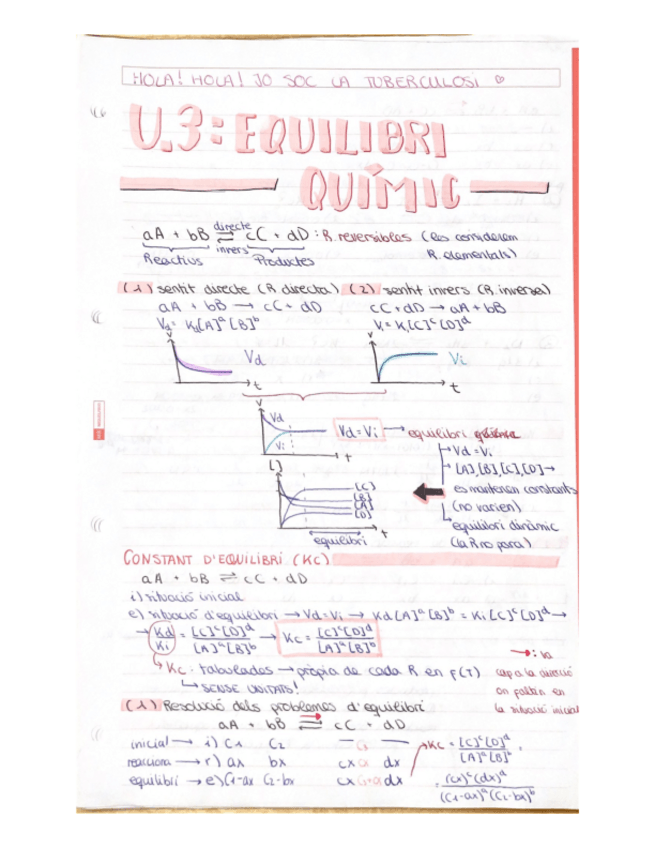 HOLA! HOLA! JO SOC LA TUBERCULOSI ♡
U.3: EQUILIBRI
QUÍMIC
aA + bB ⇌ cC + dD : R. reversibles (les considerem
directe
invers
Reactius Productes R. elementals)
(1) sentit directe (R directa) (2) sentit invers (R. inversa)
aA + bB → cC + dD cC + dD → aA + bB
Vd = Kd[A]ᵃ[B]ᵇ Vi = Ki[C]ᶜ[D]ᵈ
V V
Vd Vi
t t
V
Vd
Vi
t
Vd = Vi → equilibri químic
Vd = Vi
[A],[B],[C],[D] →
es mantenen constants
(no varien)
equilibri dinàmic
(la R no para)
[ ]
[C]
[B]
[A]
[D]
t
equilibri
CONSTANT D'EQUILIBRI (KC)
aA + bB ⇌ cC + dD
i) situació inicial
e) situació d'equilibri → Vd = Vi → Kd[A]ᵃ[B]ᵇ = Ki[C]ᶜ[D]ᵈ →
→ Kd/Ki = [C]ᶜ[D]ᵈ/[A]ᵃ[B]ᵇ → Kc = [C]ᶜ[D]ᵈ/[A]ᵃ[B]ᵇ
Kc: tabulades → pròpia de cada R en f(T)
SENSE UNITATS!
→: va
cap a la direcció
on falten en
la situació inicial
(1) Resolució dels problemes d'equilibri
aA + bB ⇌ cC + dD
inicial → i) C1 C2 — —
reacciona → r) ax bx cx dx
equilibri → e) C1-ax C2-bx cx dx
Kc = [C]ᶜ[D]ᵈ/[A]ᵃ[B]ᵇ =
= (cx)ᶜ(dx)ᵈ/(C1-ax)ᵃ(C2-bx)ᵇ